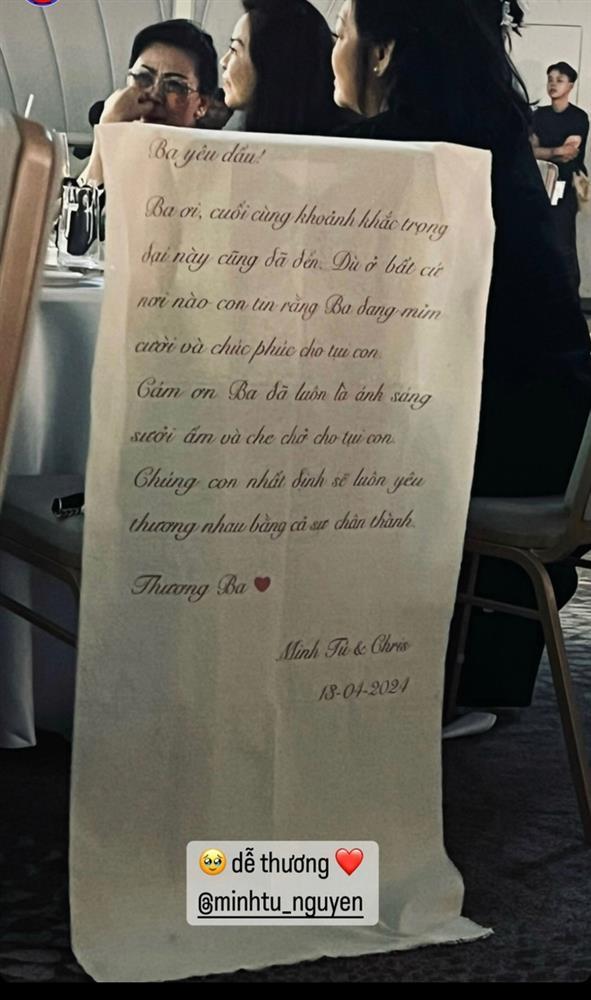 Ba yêu dấu!
Ba ơi, cuối cùng khoảnh khắc trọng
đại này cũng đã đến. Dù ở bất cứ
nơi nào con tin rằng Ba đang mỉm
cười và chúc phúc cho tụi con.
Cám ơn Ba đã luôn là ánh sáng
sưởi ấm và che chở cho tụi con.
Chúng con nhất định sẽ luôn yêu
thương nhau bằng cả sự chân thành.
Thương Ba ❤
Minh Tú & Chris
13-04-2024
🥹 dễ thương ❤️
@minhtu_nguyen